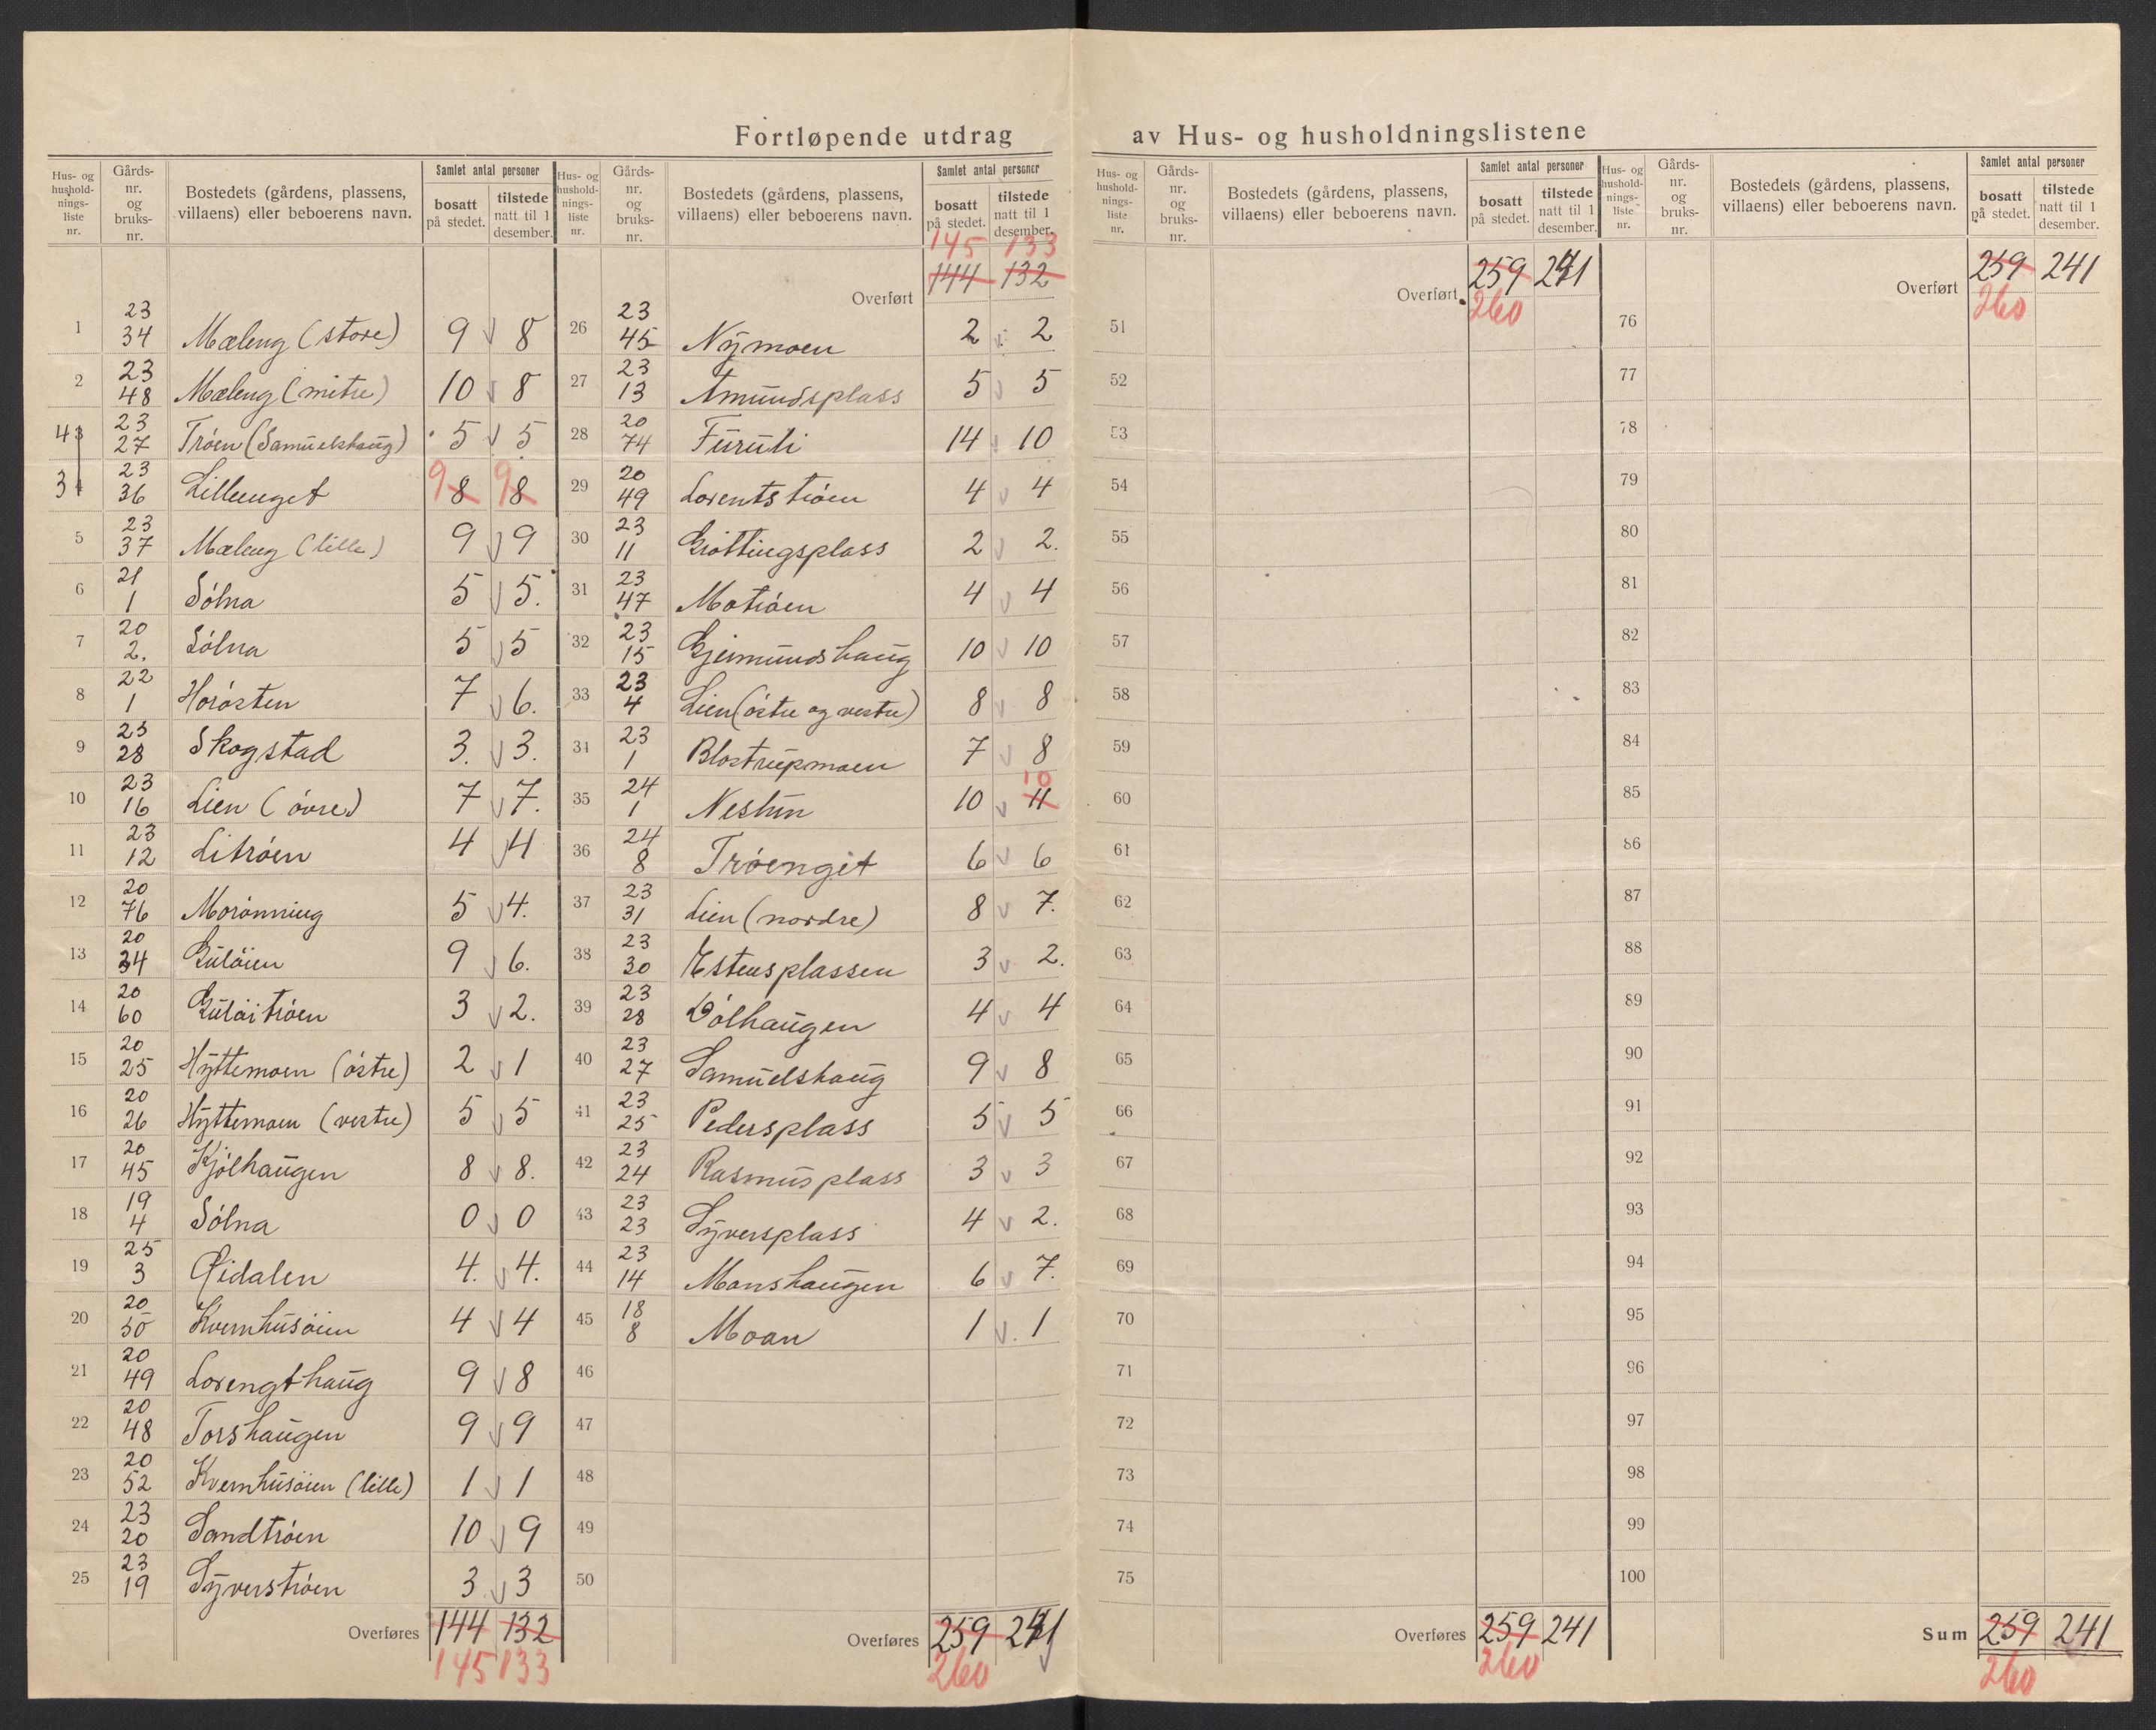 Fortløpende utdrag av Hus- og husholdningslistene
Hus- og husholdnings-liste nr. | Gårds-nr. og bruks-nr. | Bostedets (gårdens, plassens, villaens) eller beboerens navn. | Samlet antal personer | bosatt på stedet. | tilstede natt til 1 desember.
1 | 23 34 | Mæleng (store) | 9 | 8
2 | 23 48 | Mæleng (mitre) | 10 | 8
4 3 | 23 27 | Trøen (Samuelshaug) | 5 | 5
3 4 | 23 36 | Lillenget | 9 8 | 9 8
5 | 23 37 | Mæleng (lille) | 9 | 9
6 | 21 1 | Sólna | 5 | 5.
7 | 20 2. | Sólna | 5 | 5
8 | 22 1 | Horósten | 7 | 6.
9 | 23 28 | Skogstad | 3. | 3.
10 | 23 16 | Lien (óvre) | 7 | 7.
11 | 23 12 | Litróen | 4 | 4
12 | 20 76 | Morónning | 5 | 4.
13 | 20 34 | Gulöien | 9 | 6.
14 | 20 60 | Gulöitróen | 3 | 2.
15 | 20 25 | Hyttemoen (óstre) | 2 | 1
16 | 20 26 | Hyttemoen (vestre) | 5 | 5
17 | 20 45 | Kjólhaugen | 8 | 8.
18 | 19 4 | Sólna | 0 | 0
19 | 25 3 | Eidalen | 4. | 4.
20 | 20 50 | Kvernhusöien | 4 | 4
21 | 20 49 | Lorengthaug | 9 | 8
22 | 20 48 | Torshaugen | 9 | 9
23 | 20 52 | Kvernhusöien (lille) | 1 | 1
24 | 23 20 | Sandtróen | 10 | 9
25 | 23 19 | Syverstróen | 3 | 3
Overføres | 144 | 132
145 | 133
Hus- og husholdnings-liste nr. | Gårds-nr. og bruks-nr. | Bostedets (gårdens, plassens, villaens) eller beboerens navn. | Samlet antal personer | bosatt på stedet. | tilstede natt til 1 desember.
145 | 133
Overført | 144 | 132
26 | 23 45 | Nymoen | 2 | 2
27 | 23 13 | Amundsplass | 5 | 5
28 | 20 74 | Furuli | 14 | 10
29 | 20 49 | Lorentstróen | 4 | 4
30 | 23 11 | Gróttingsplass | 2 | 2.
31 | 23 47 | Motróen | 4 | 4
32 | 23 15 | Gjeimundshaug | 10 | 10
33 | 23 4 | Lien (óstre og vestre) | 8 | 8
34 | 23 1 | Blostrupmoen | 7 | 8
35 | 24 1 | Nestun | 10 | 10 11
36 | 24 8 | Tróenget | 6 | 6
37 | 23 31 | Lien (nordre) | 8 | 7.
38 | 23 30 | Estensplassen | 3 | 2.
39 | 23 28 | Dólhaugen | 4 | 4
40 | 23 27 | Samuelshaug | 9 | 8
41 | 23 25 | Pedersplass | 5 | 5
42 | 23 24 | Rasmusplass | 3 | 3
43 | 23 23 | Syversplass | 4 | 2.
44 | 23 14 | Monshaugen | 6 | 7.
45 | 18 8 | Moan | 1 | 1
46
47
48
49
50
Overføres | 259 | 241
260
Hus- og husholdnings-liste nr. | Gårds-nr. og bruks-nr. | Bostedets (gårdens, plassens, villaens) eller beboerens navn. | Samlet antal personer | bosatt på stedet. | tilstede natt til 1 desember.
Overført | 259 | 241
260
51
52
53
54
55
56
57
58
59
60
61
62
63
64
65
66
67
68
69
70
71
72
73
74
75
Overføres | 259 | 241
260
Hus- og husholdnings-liste nr. | Gårds-nr. og bruks-nr. | Bostedets (gårdens, plassens, villaens) eller beboerens navn. | Samlet antal personer | bosatt på stedet. | tilstede natt til 1 desember.
Overført | 259 | 241
260
76
77
78
79
80
81
82
83
84
85
86
87
88
89
90
91
92
93
94
95
96
97
98
99
100
Sum | 259 | 241
260